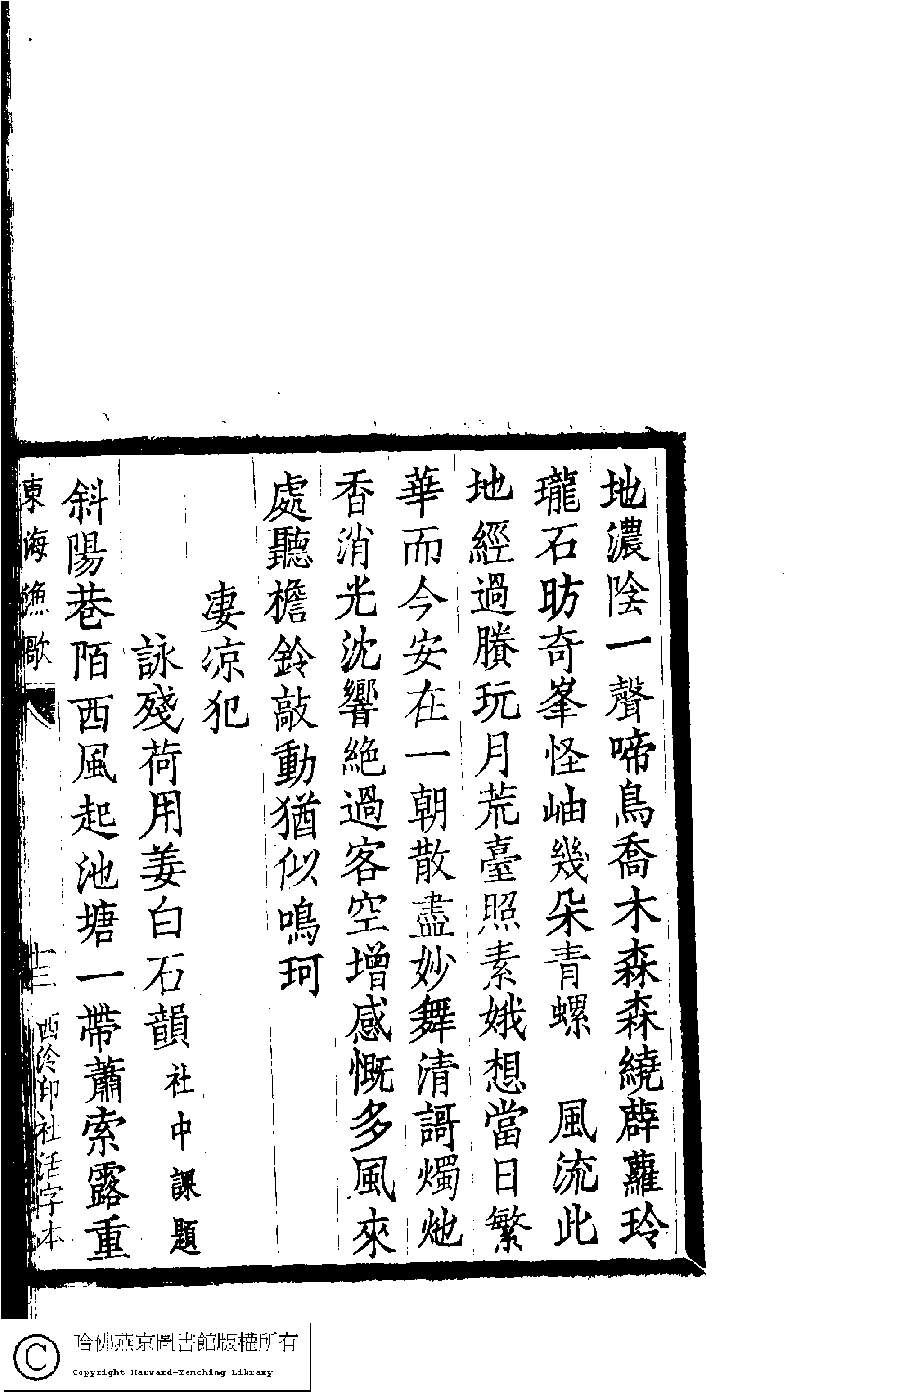 地濃陰一聲啼鳥喬木森森繞薜蘿玲
瓏石昉奇峯怪岫幾朵青螺　風流此
地經過賸玩月荒臺照素娥想當日繁
華而今安在一朝散盡妙舞清謌燭灺
香消光沈響絕過客空增感慨多風來
處聽檐鈴敲動猶似鳴珂
淒涼犯
詠殘荷用姜白石韻社中課題
斜陽巷陌西風起池塘一帶蕭索露重
東海漁歌
十三
西泠印社活字本
哈佛燕京圖書館版權所有
Copyright Harvard-Yenching Library